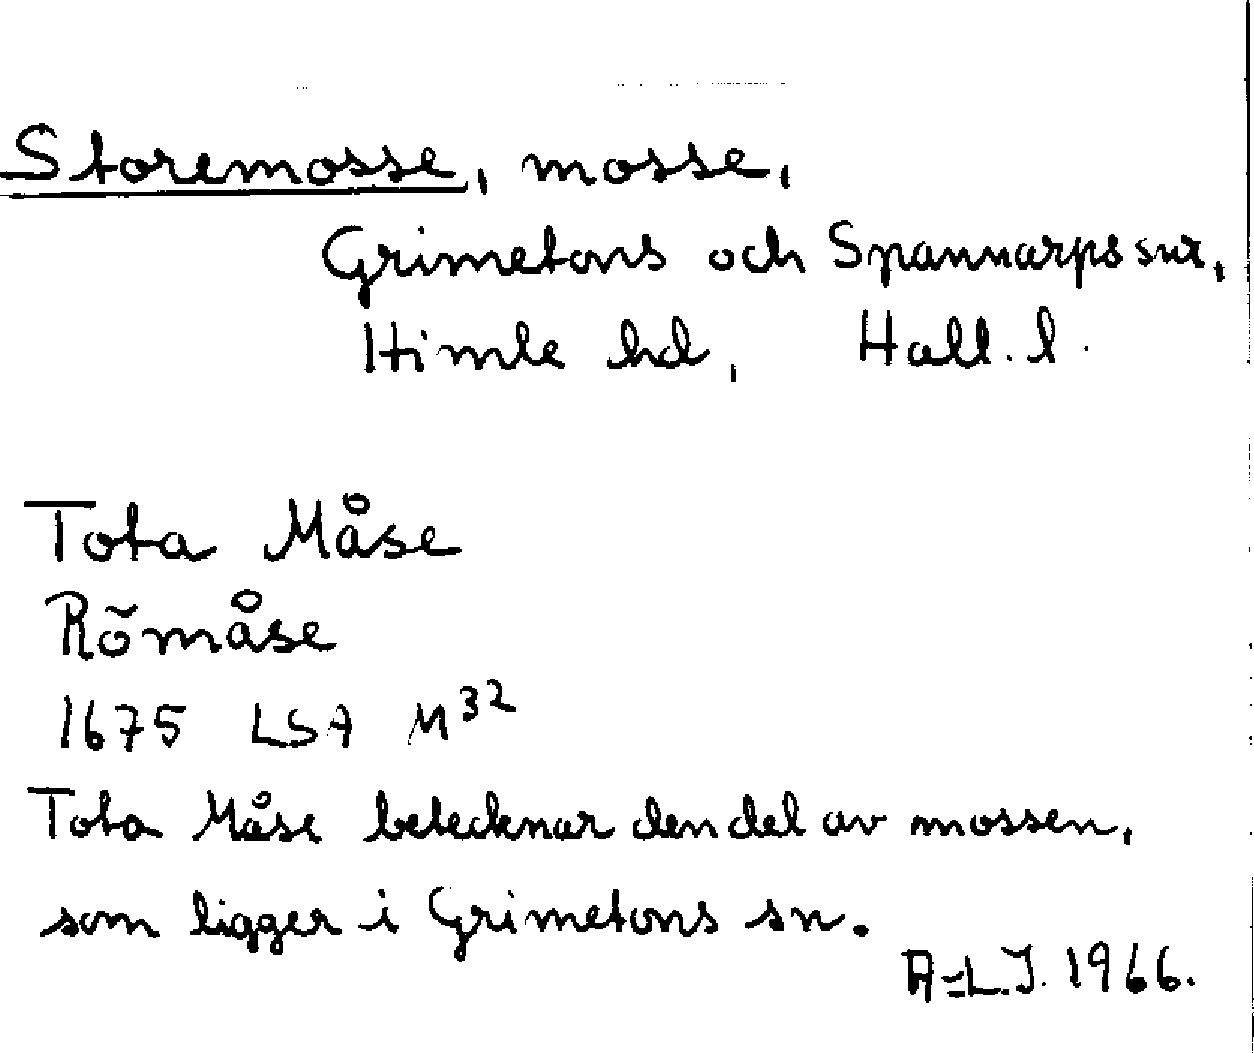 Storemosse, mosse,
Grimetons och Spannarps snr,
Himle hd, Hall. l.
Tota Måse
Rõmåse
1675 LSA M³²
Tota Måse betecknar den del av mossen,
som ligger i Grimetons sn.
A-L.J. 1966.